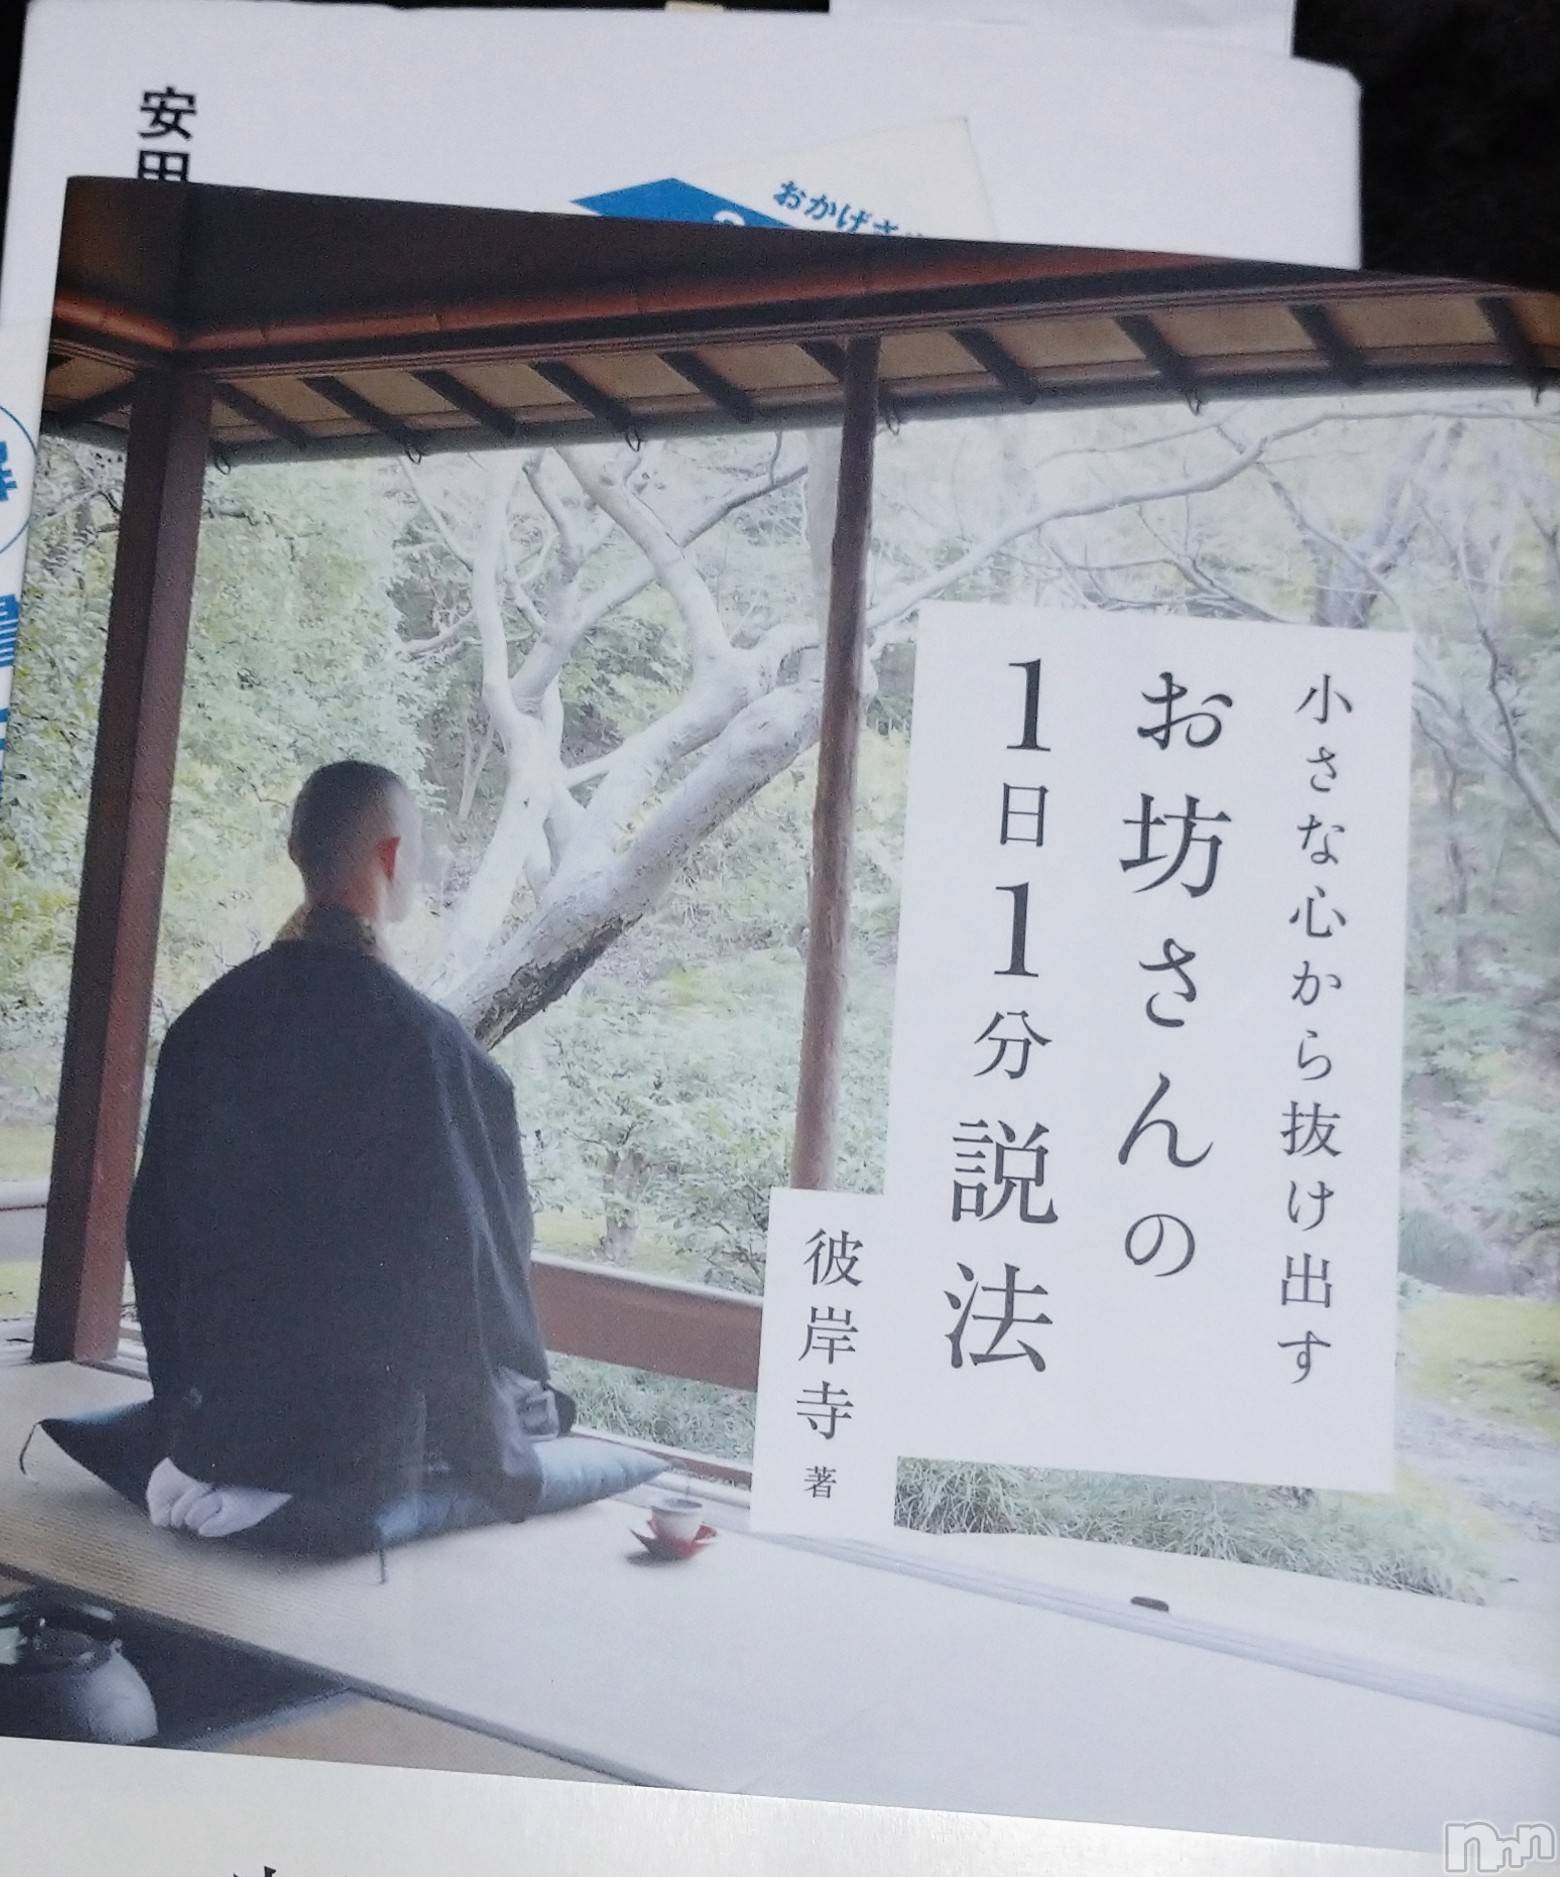 安田
おかげさ
小さな心から抜け出す
お坊さんの
1日1分説法
彼岸寺 著
nnn